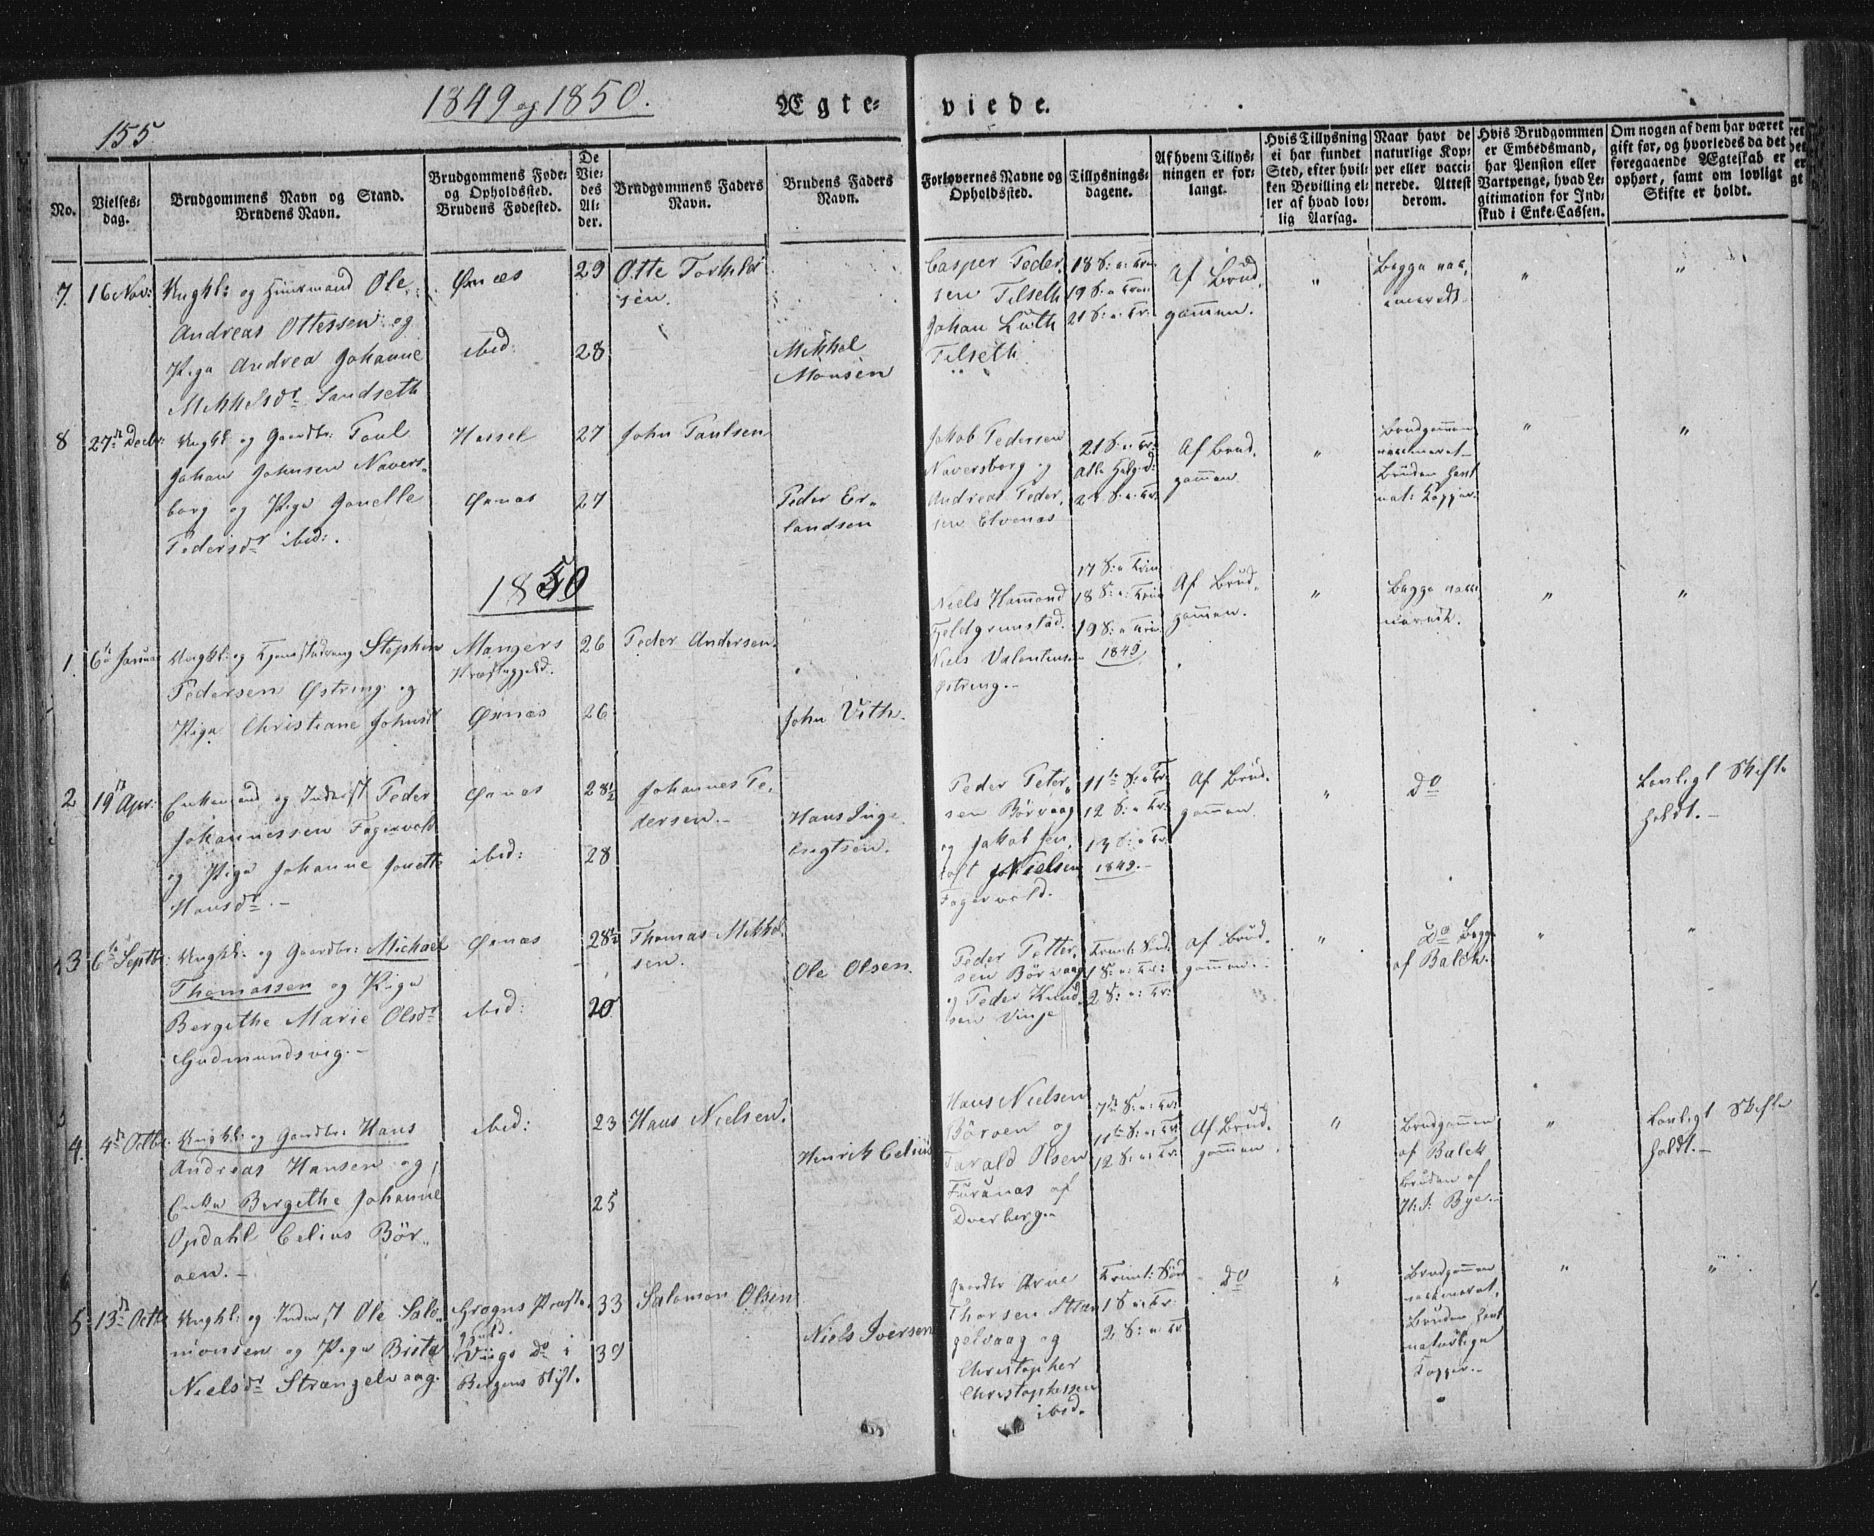 155
1849 og 1850.
Ægteviede.
No.
Vielses-
dag.
Brudgommens Navn og Stand.
Brudens Navn.
Brudgommens Føde-
og Opholdssted.
Brudens Fødested.
De
Vie-
des
Al-
der.
Brudgommens Faders
Navn.
Brudens Faders
Navn.
Forlovernes Navne og
Opholdssted.
Tillysnings-
dagene.
Af hvem Tillys-
ningen er for-
langt.
Hvis Tillysning
ei har fundet
Sted, efter hvil-
ken Bevilling el-
ler af hvad lov-
lig Aarsag.
Naar havt de
naturlige Kop-
per eller vacci-
nerede. Attest
derom.
Hvis Brudgommen
er Embedsmand,
har Pension eller
Vartpenge, hvad Le-
gitimation for Ind-
skud i Enke-Cassen.
Om nogen af dem har været
gift før, og hvorledes da det
foregaaende Ægteskab er
ophørt, samt om lovligt
Skifte er holdt.
7. 16 Nov:
Ungkl: og Huusmand Ole
Andreas Ottessen og
Pige Andrea Johanne
Mikkelsdr Sandseth
Øxnæs
ibid:
29
28
Otte Torkild
sen
Mikkel
Monsen
Casper Peder
sen Tilseth
Johan Lüth
Tilseth
18 S: e: Trin
19 S: e Trin
21 S: e: Tr:
Af Brud
gommen.
"
Begge vac
cinerede
"
"
8 27de Decbr:
Ungkl: og Gaardbr: Paul
Johan Johnsen Navers-
borg og Pige Jonelle
Pedersdr ibid:.
Hassel
Øxnæs
27
27
John Paulsen
Peder Er-
landsen
Jakob Pedersen
Naversborg og
Andreas Peder
sen Elvenæs
21 S: e: Tr:
Alle Helg: d:
22 S: e: Tr:
Af Brud
gommen
"
Brudgommen
vaccineret
Bruden havt
nat: Kopper
"
"
1850
1. 6te Januar
Ungkl: og Tjenestedreng Stephen
Pedersen Østring og
Pige Christiane Johnsdr
Mangers
Præstegjeld.
Øxnæs
26
26
Peder Andersen.
John Vith.
Niels Hamond
Fjeldgrunstad
Niels Valentinsen
Østring.-
17 S: e Trin
18 S: e: Trin
19 S: e Trin
1849
Af Brud
gommen.
"
Begge vacci
nerede.
"
"
2 19de Apr:
Enkemand og Inderst Peder
Johannessen Fagervold
og Pige Johanne Jonette
Hansdr.-
Øxnæs
ibid:
28½
28
Johannes Pe-
dersen.-
Hans Inge
bregtsen.
Peder Peter-
sen Börvaag
og Jakob Jen
toft Nielsen
Fagervold.
11te S: e Tr:
12 S: e Tr:
13 S: e Tr:
1849.-
Af Brud-
gommen.
"
do
Lovligt Skifte
holdt.-
3 6te Septbr:
Ungkl: og Gaardbr: Michael
Thomassen og Pige
Bergithe Marie Olsdr
Gudmundsvig.-
Øxnæs
ibid:
28½
20
Thomas Mikkel-
sen.
Ole Olsen.
Peder Petter-
sen Börvaag
og Peder Knud
sen Vinje
Trinit: Sønd
1 S: e: Tr:
2 S: e: Tr:
Af Brud-
gommen.
"
Do Begge
af Balch.
"
"
4. 4de Octbr:
Ungkl: og Gaardbr: Hans
Andreas Hansen og
Enke Bergethe Johanne
Opdahl Celius Bör-
øen.-
ibid:
23
25
Hans Nielsen.
Henrik Celius
Hans Nielsen
Böröen og
Tarald Olsen
Furunæs af
Dverberg.-
7de S: e: Tr:
11te S: e: Tr:
12 S: e: Tr:
Af Brud-
gommen.
"
Brudgommen
af Balch
Bruden af
H: J: Bye.-
"
Lovligt Skifte
holdt.-
5. 13de Octbr
Ungkl: og Inderst Ole Salo-
monsen og Pige Brita
Nielsdr Strængelvaag.
Graguns Præste-
gjeld.
Viigs do i
Bergens Stift.
33
39
Salomon Olsen
Niels Iversen
Gaardbr Arne
Thorsen Stræn
gelvaag og
Christopher
Christophersen
ibid.
Trinit: Sønd
1 S: e: Tr:
2 S: e: Tr
do
"
Brudgommen
vaccineret,
Bruden havt
naturlige
Kopper.-
"
"